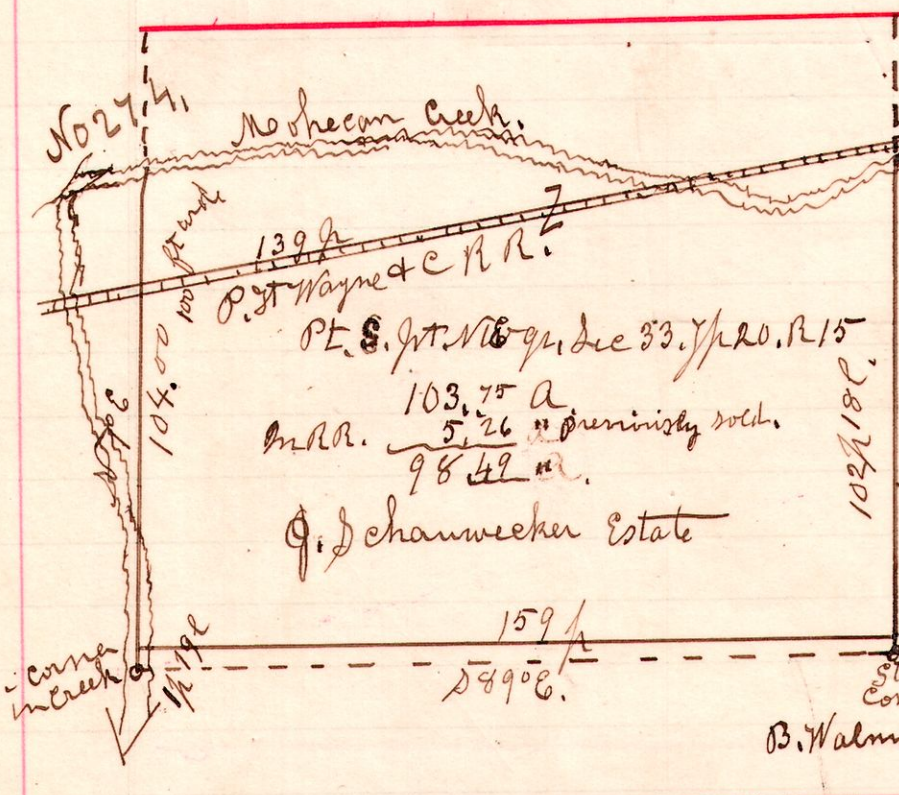 No 274.
Mohecan Creek.
139 p
P. Ft Wayne & C R R.
104.00
Pt. S. pt. NE qr. Sec 33. Tp 20. R 15
103.75 A
In RR. 5.26 " previously sold.
98.49 "
102 p 18 l.
J. Schauwecker Estate
159 p
S 89° E.
corner
in Creek
1 p 19 l
St
Cor
B. Walm